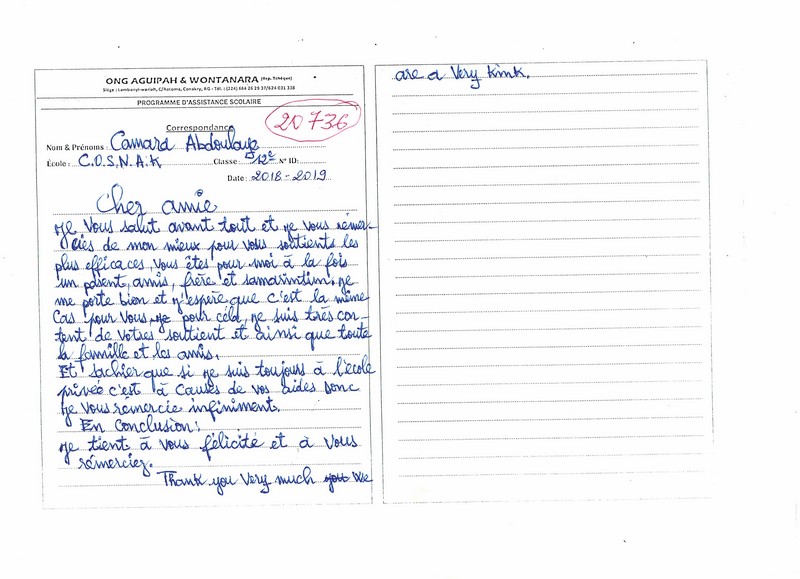 ONG AGUIPAH & WONTANARA (Rep. Tchèque)
Siège : Lambanyi-wariah, C/Ratoma, Conakry, RG - Tél. : (224) 664 26 29 37/624 031 338
PROGRAMME D'ASSISTANCE SCOLAIRE
Correspondance
20 736
Nom & Prénoms : Camara Abdoulaye
École : C.O.S.N.A.K Classe : 12e N° ID:
Date : 2018-2019
Chez amie
Je vous salut avant tout et je vous rémer-
cies de mon mieux pour vous soutients les
plus efficaces, vous êtes pour moi à la fois
un parent, amis, frère et samarintin. je
me porte bien et j'espère que c'est la même
cas pour vous, je pour céld, je suis très con-
tent de votres soutient et ainsi que toute
la famille et les amis.
Et sachier que si je suis toujours à l'école
privée c'est à causes de vos aides donc
je vous remercie infiniment.
En conclusion:
je tient à vous félicité et à vous
rémerciez.
Thank you very much you We
are a very kink.